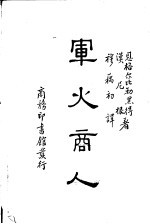 恩格尔比勒黑得著
漢尼根
穆藕初譯
軍火商人
商務印書館發行